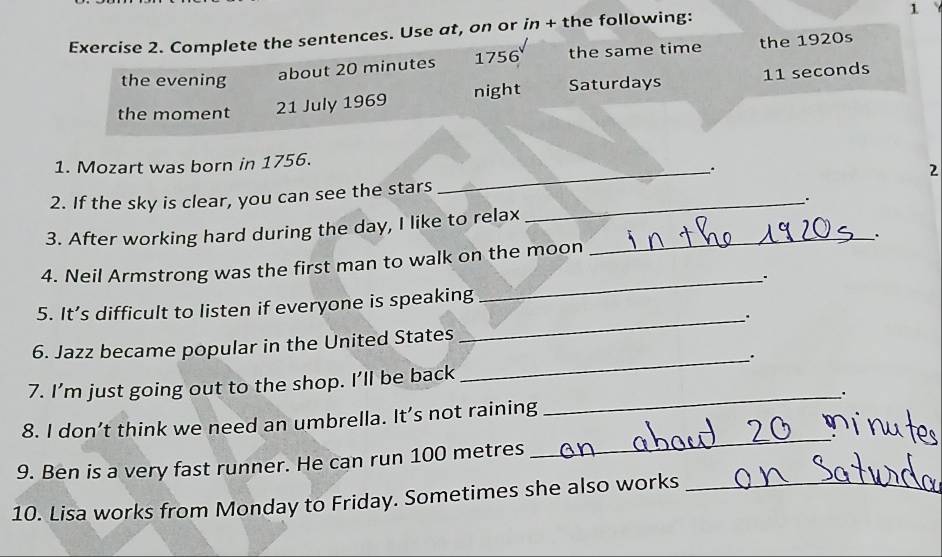 1
Exercise 2. Complete the sentences. Use at, on or in + the following:
the evening about 20 minutes 1756 the same time the 1920s
the moment 21 July 1969 night Saturdays 11 seconds
1. Mozart was born in 1756.
2
2. If the sky is clear, you can see the stars ____.
3. After working hard during the day, I like to relax ____.
4. Neil Armstrong was the first man to walk on the moon in the 1920s.
5. It's difficult to listen if everyone is speaking ____.
6. Jazz became popular in the United States ____.
7. I'm just going out to the shop. I'll be back ____.
8. I don't think we need an umbrella. It's not raining ____.
9. Ben is a very fast runner. He can run 100 metres on about 20 minutes
10. Lisa works from Monday to Friday. Sometimes she also works on Saturda